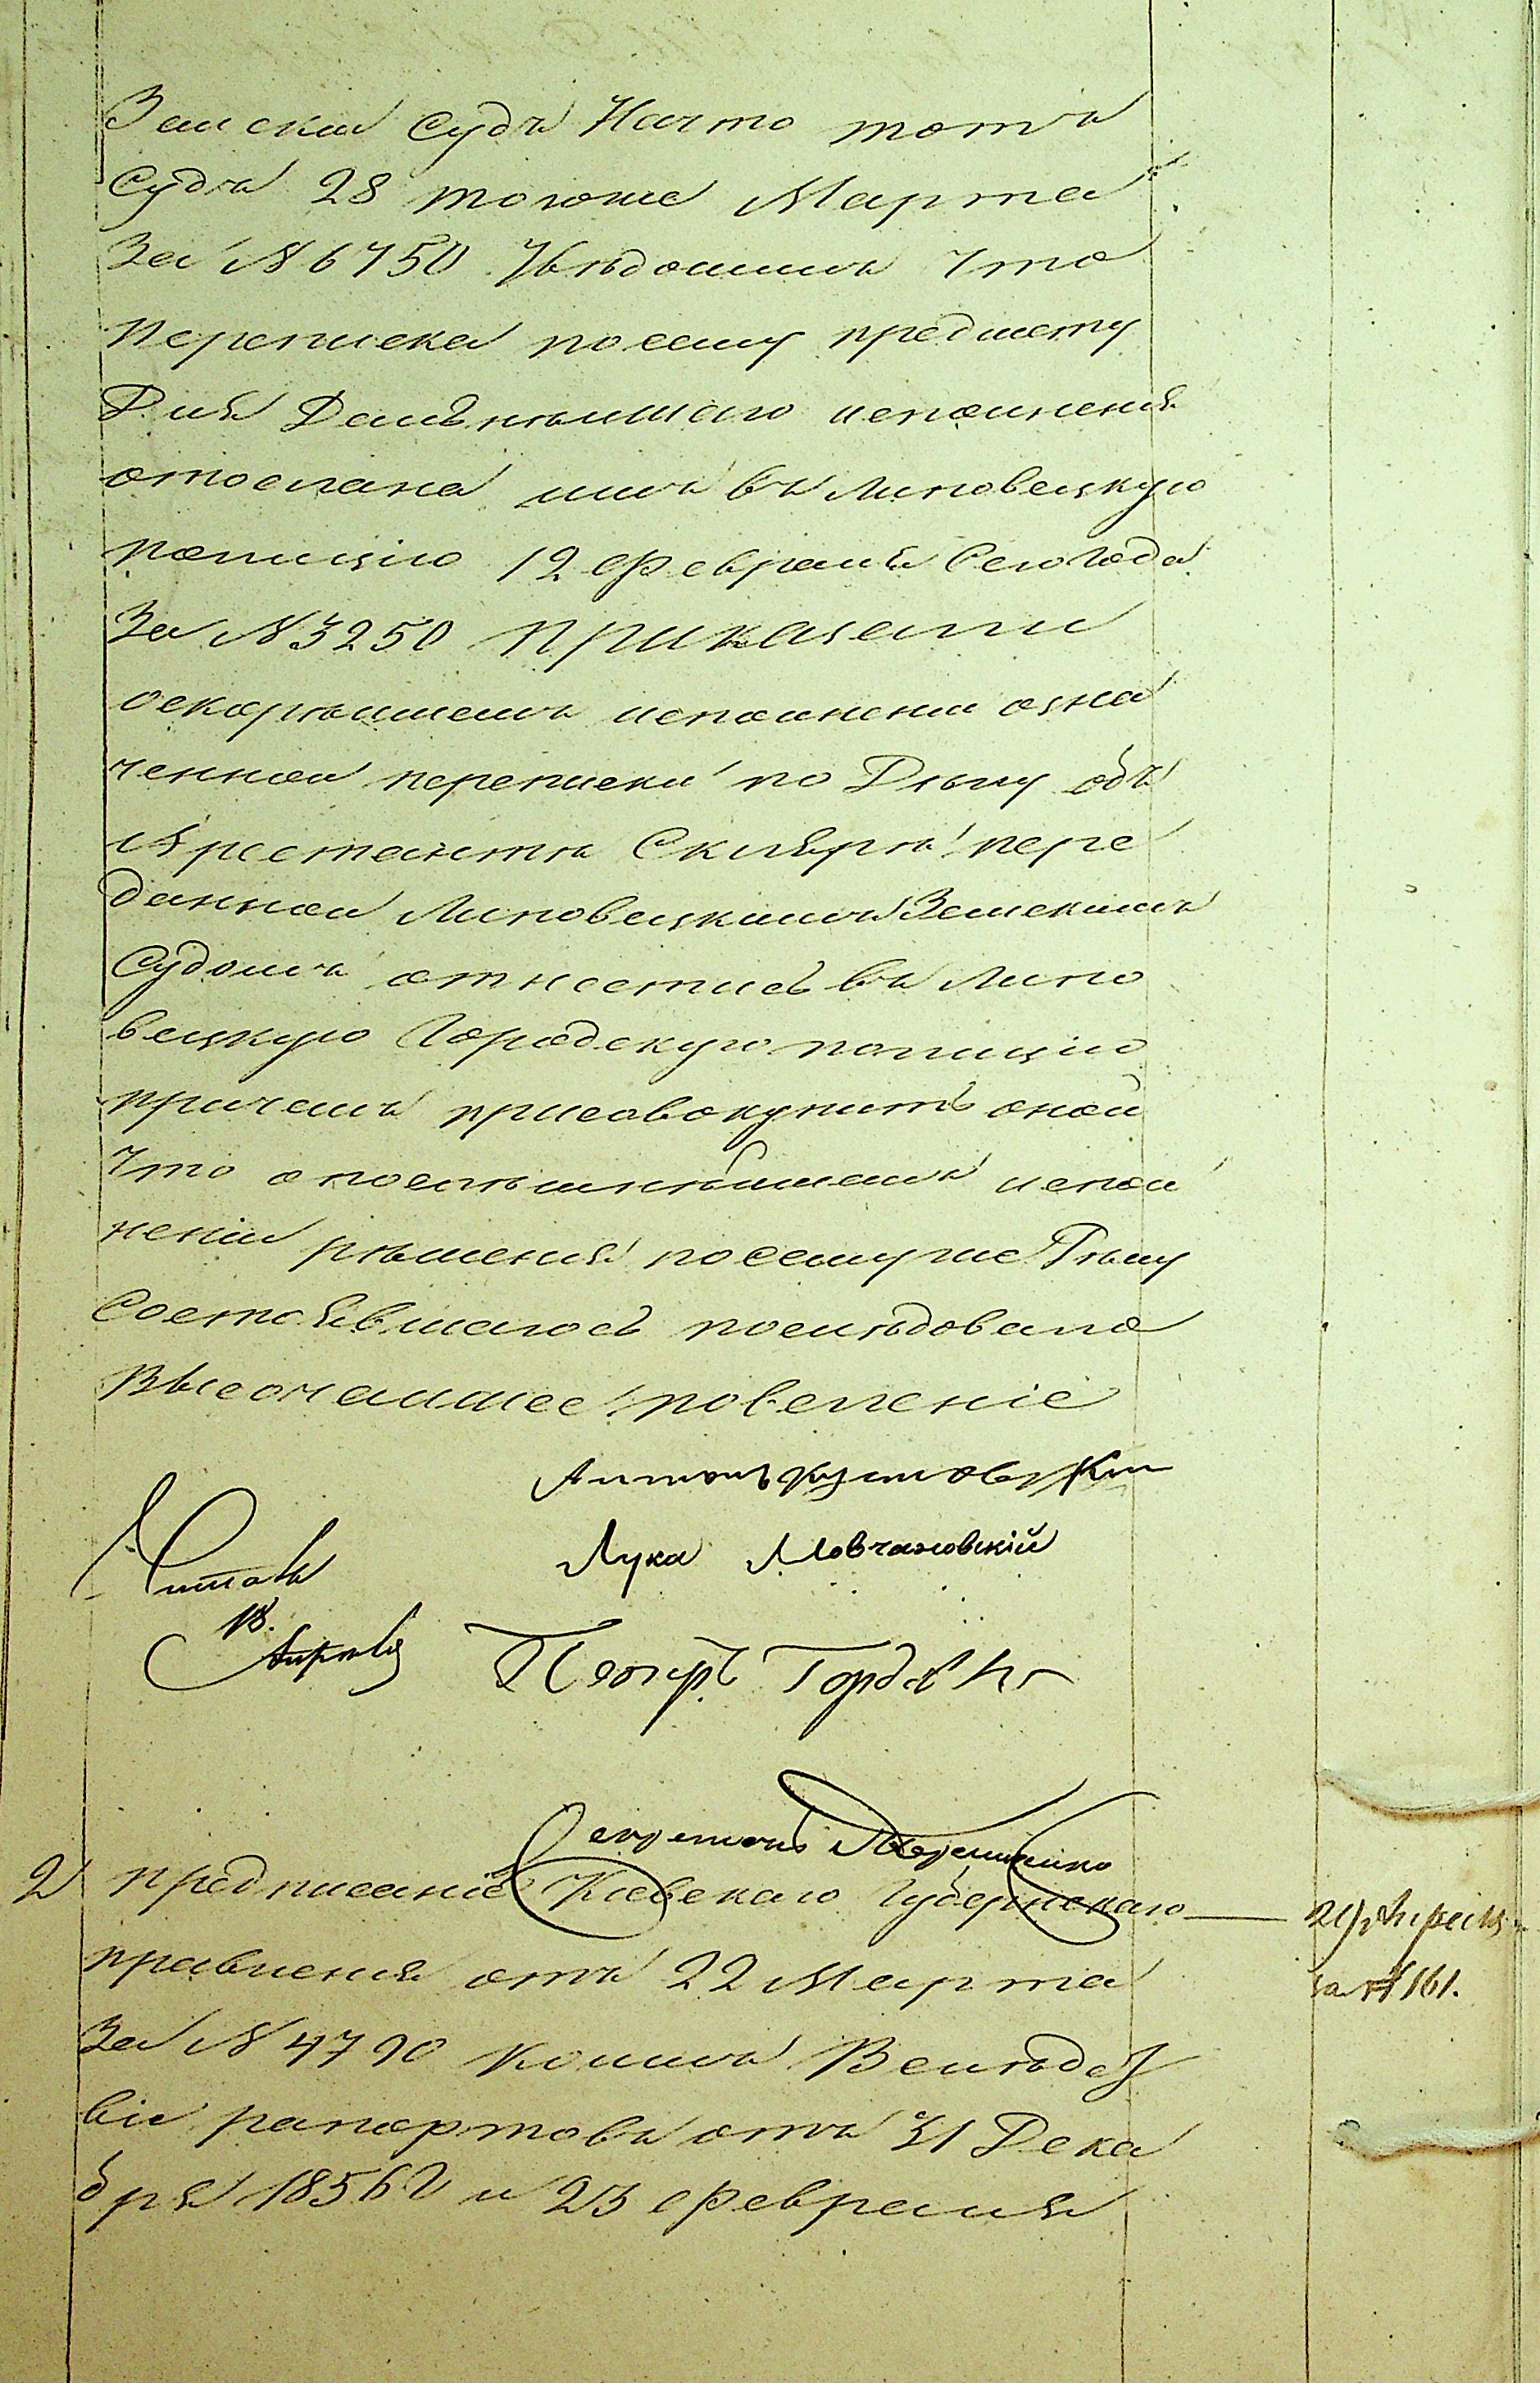 Земски Судъ На что тотъ
Судъ 28 того же Марта
За № 6750 Увѣдомилъ что
переписка по сему предмету
Для Дальнѣйшаго исполненія
отослана имъ въ Липовецкую
полицію 12 февраля Сего года
За № 3250 приказали
о скорѣйшемъ исполнении озна
ченной переписки по Дѣлу объ
Арестантѣ Склярѣ пере
данной Липовецкимъ Земскимъ
Судомъ отнестись въ Липо
вецкую Городскую полицію
причемъ присовокупить оной
что о поспѣшнѣйшемъ испол
неніи рѣшенія по сему же Дѣлу
Состоявшагося послѣдовало
Высочайшее повеленіе
Антонъ
Лука Мовчановскій
Читалъ
18.
Апрѣля Петръ Гордѣ
Секретарь
2 предписаніе Кіевскаго Губернскаго 29 Апреля
правленія отъ 22 Марта за № 161.
За № 4790 коимъ Вслѣдст
віи рапортовъ отъ 31 Дека
бря 1856 г и 23 февраля